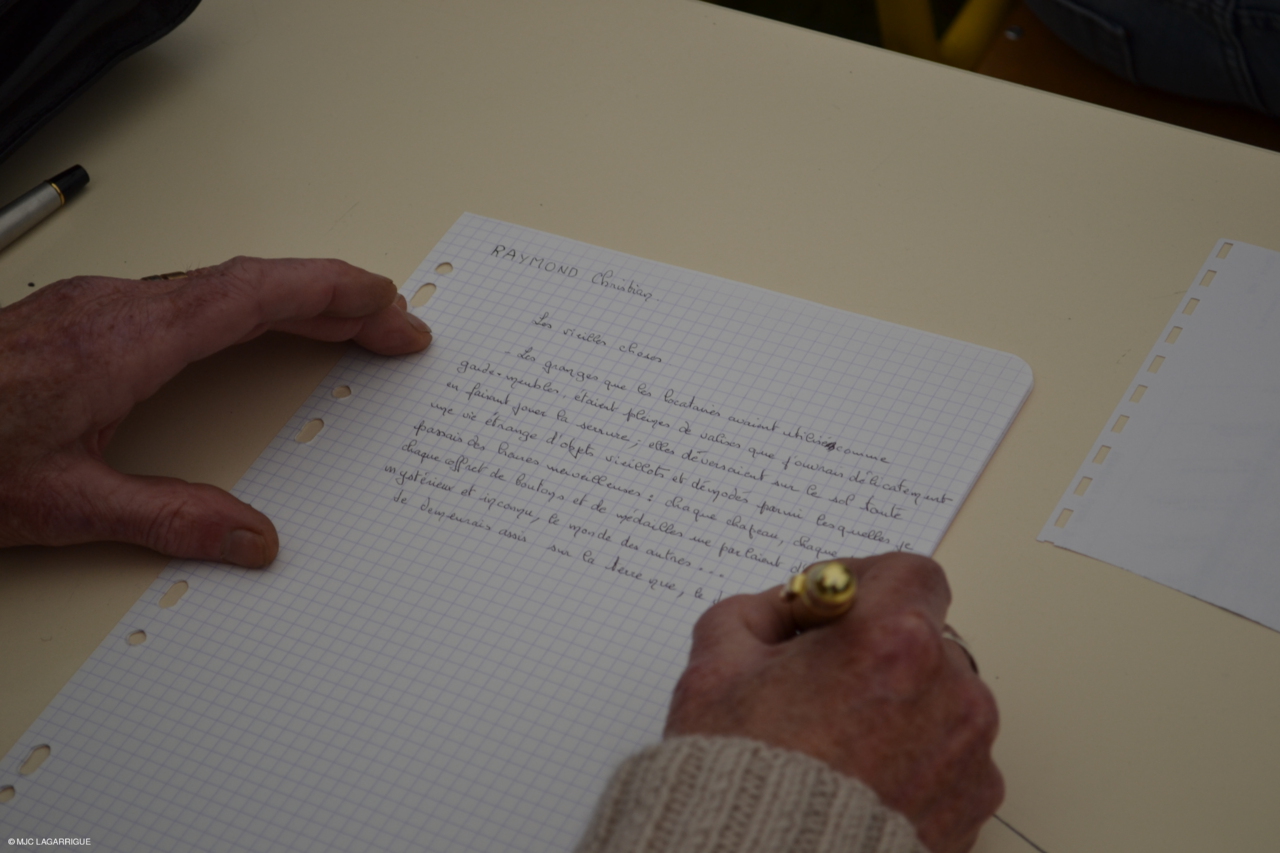 RAYMOND Christian.
Les vieilles choses
- Les granges que les locataires avaient utilisées comme
garde-meubles, étaient pleines de valises que j'ouvrais délicatement
en faisant jouer la serrure ; elles déversaient sur le sol toute
une vie étrange d'objets vieillots et démodés parmi lesquelles je
passais des heures merveilleuses : chaque chapeau, chaque
chaque coffret de boutons et de médailles me parlaient
mystérieux et inconnu, le monde des autres ...
Je demeurais assis sur la terre que, le
© MJC LAGARRIGUE